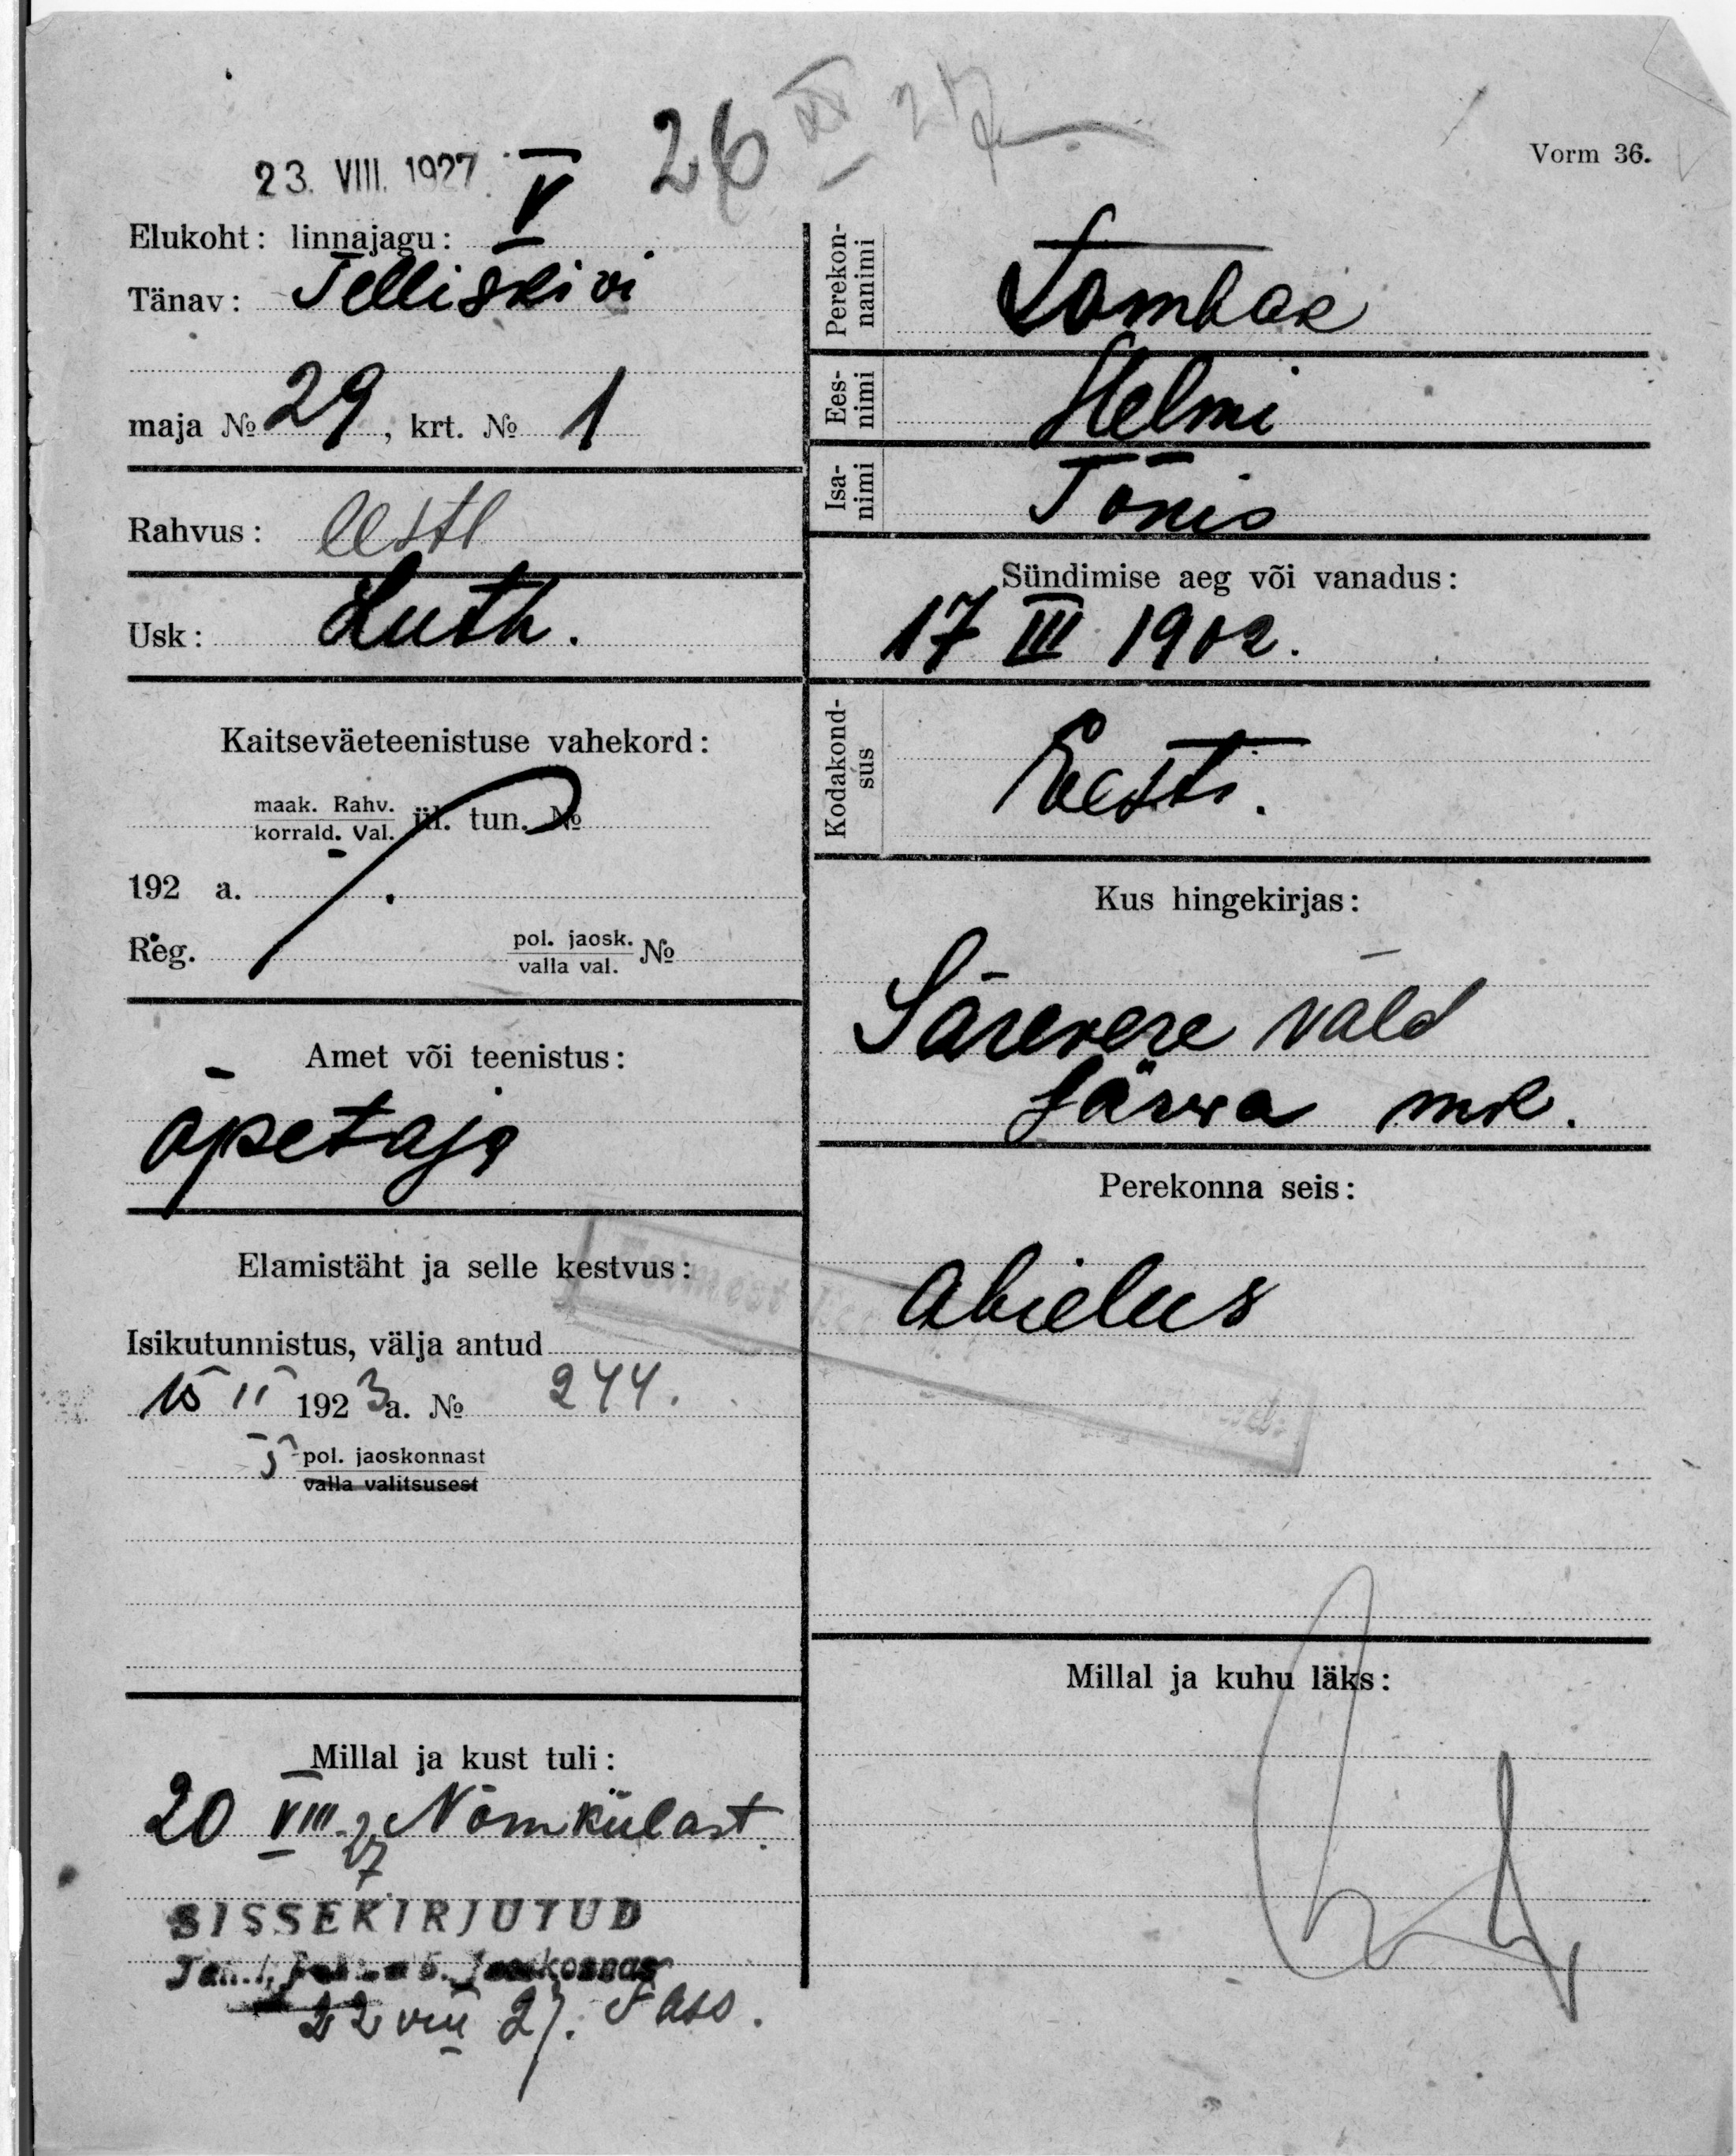 23. VIII. 1927. 26 IX 27
Vorm 36.
Elukoht: linnajagu: V
Tänav: Telliskivi
maja № 29, krt. № 1
Rahvus: eesti
Usk: Luth.
Kaitseväeteenistuse vahekord:
maak. Rahv.
korrald. Val. ül. tun. №
192 a.
Reg. pol. jaosk.
valla val. №
Amet või teenistus:
õpetaja
Elamistäht ja selle kestvus:
Isikutunnistus, välja antud
15 II 1923 a. № 244.
5 pol. jaoskonnast
valla valitsusest
Millal ja kust tuli:
20 VIII 27 Nõmkülast.
SISSEKIRJUTUD
22 VIII 27.
Perekon-
nanimi
Tombak
Ees-
nimi Helmi
Isa-
nimi Tõnis
Sündimise aeg või vanadus:
17 III 1902.
Kodakond-
sus Eesti.
Kus hingekirjas:
Särevere vald
Järva mk.
Perekonna seis:
Abielus
Millal ja kuhu läks: